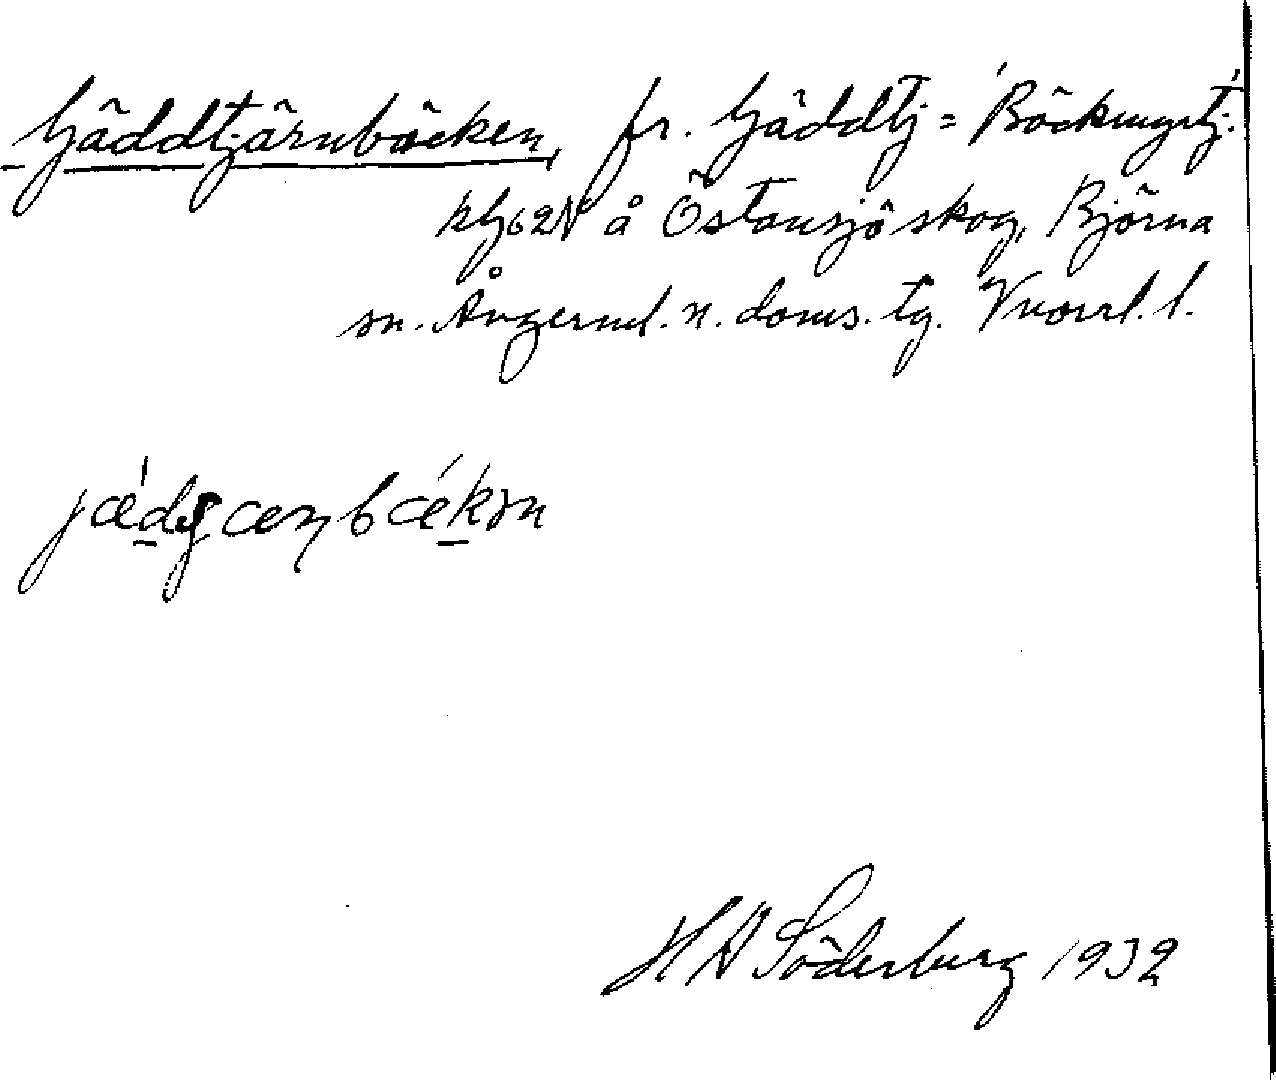 Gäddtjärnbäcken, fr. Gäddtj = Bäckmyrtj.
62N å Östansjö skog, Björna
sn. Ångerml. n. doms. tg. Vnorrl. l.
H A Söderberg 1932